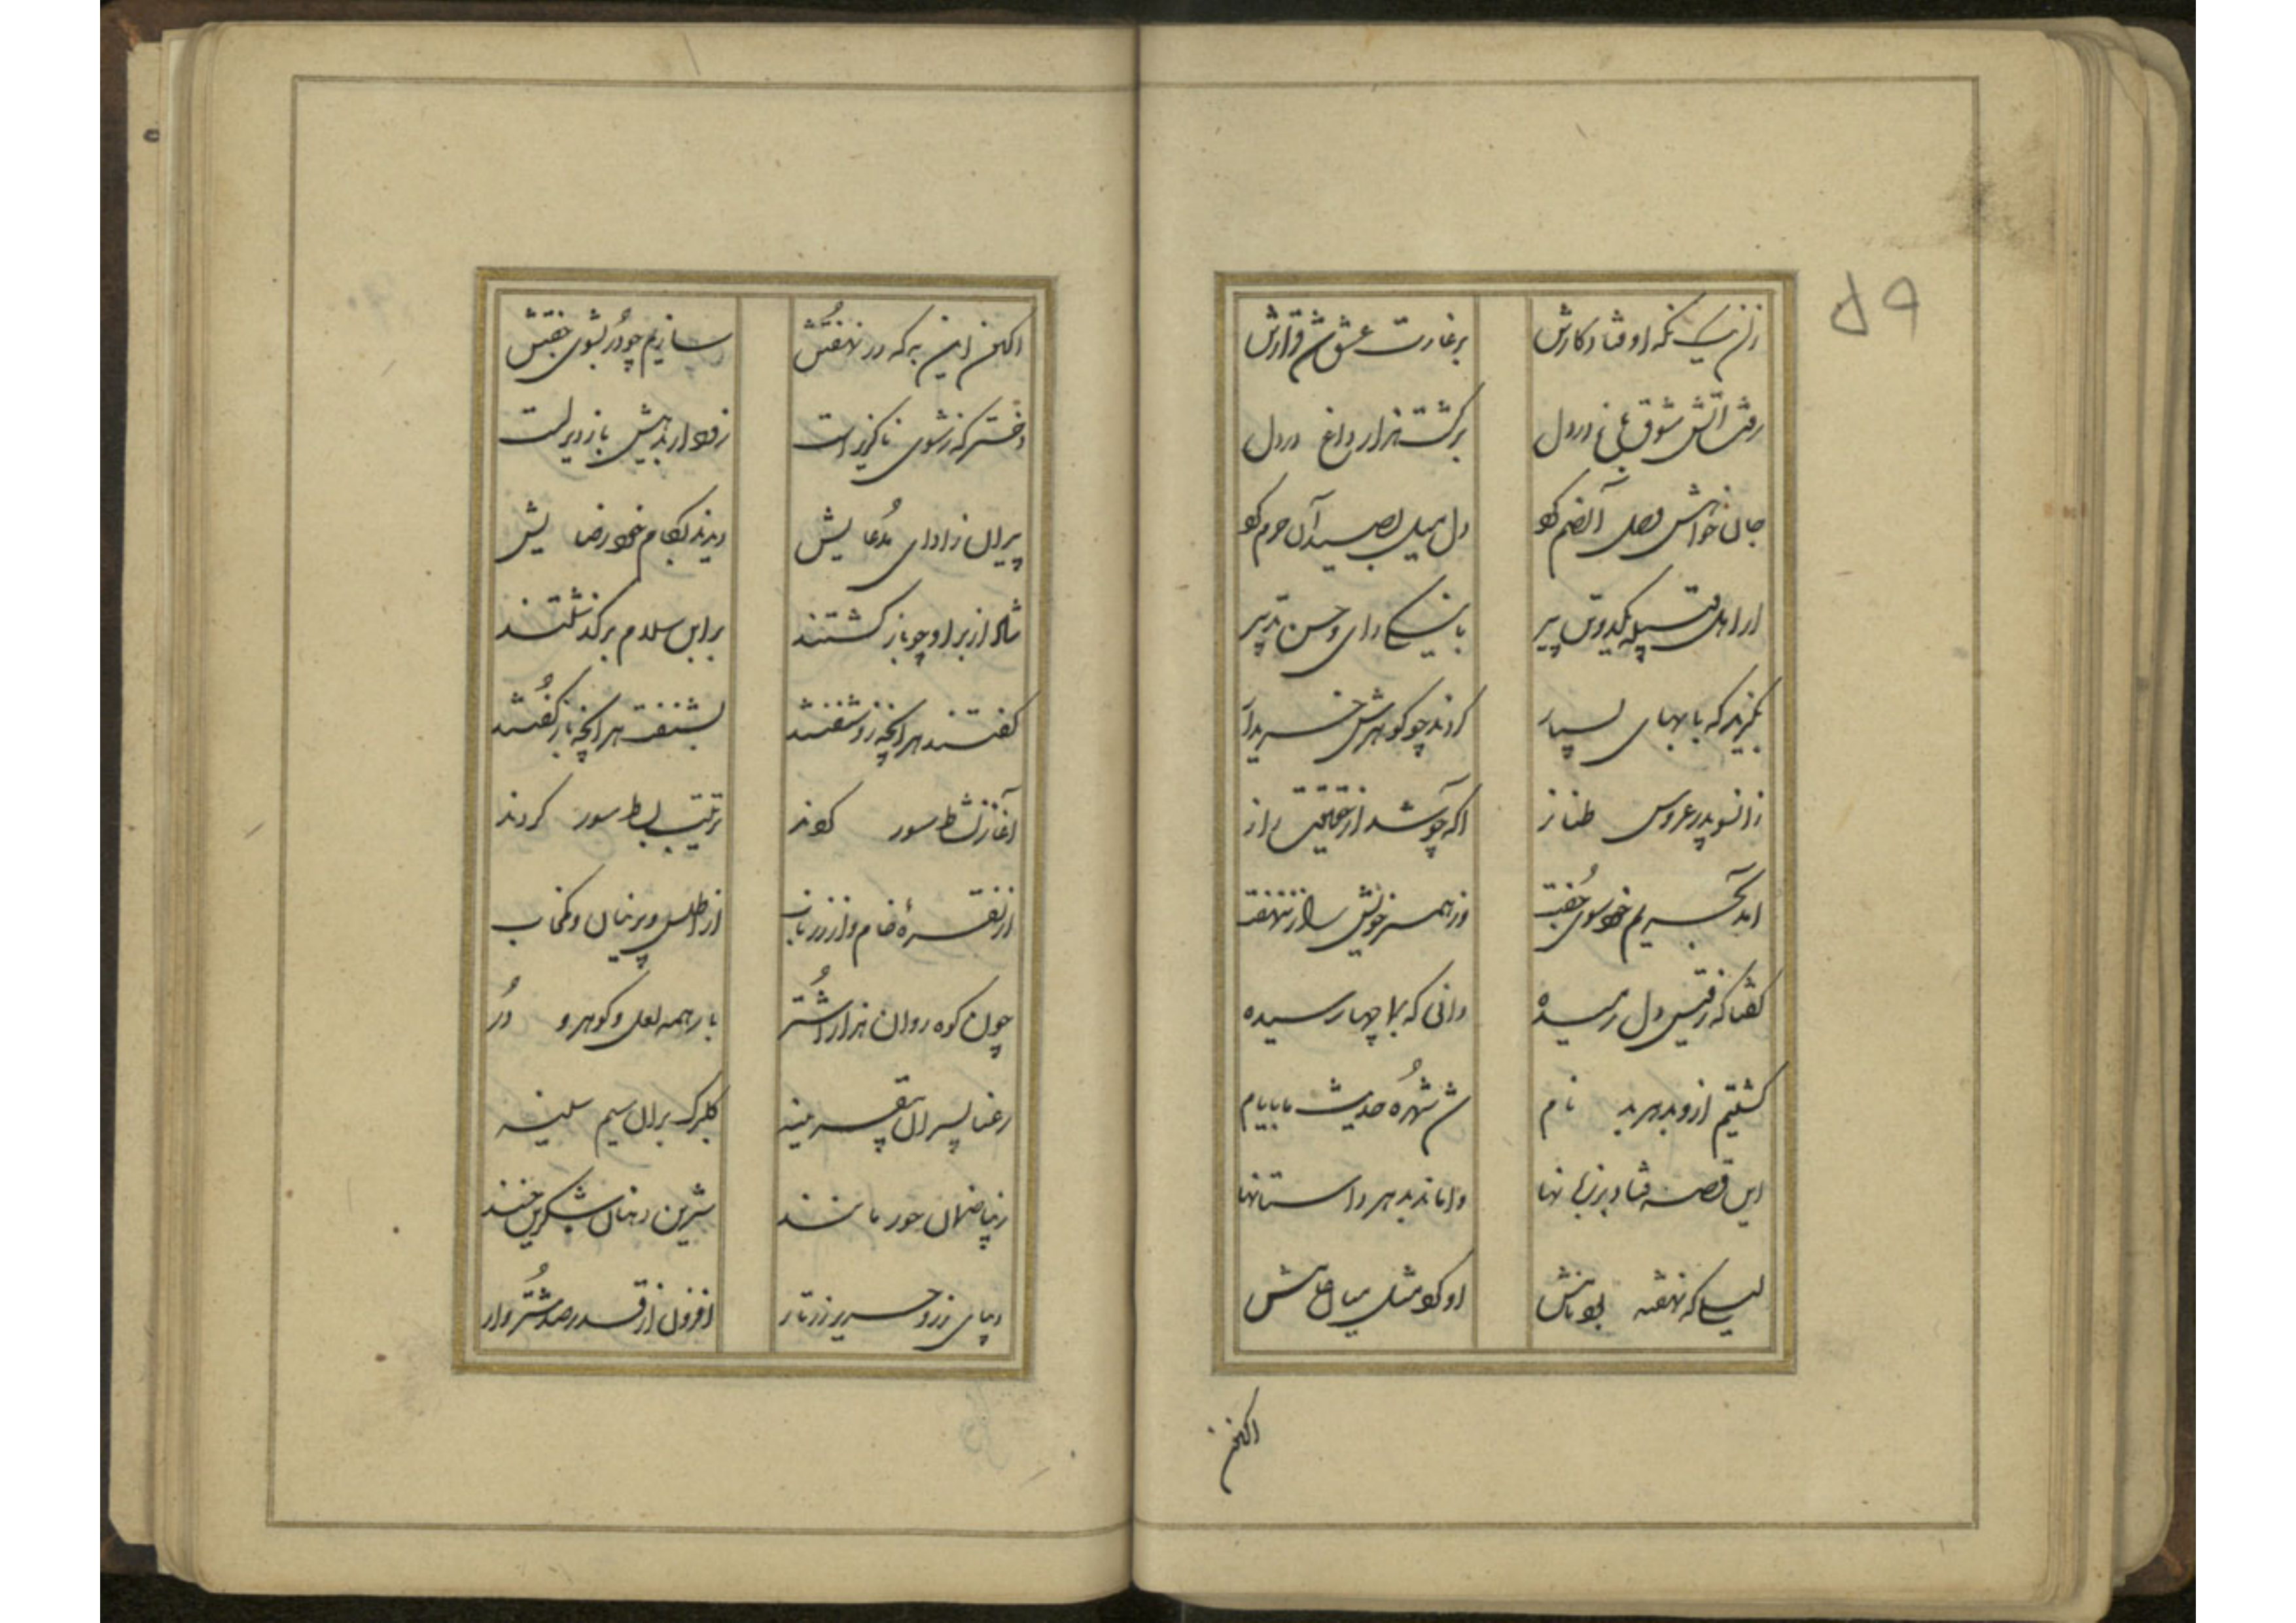 ۵۹
زان یک نگه اوفتاد کارش
بر غارت عشق شد قرارش
رفت آتش شوق یار در دل
برگشت هزار داغ در دل
جان خواهش وصل آن صنم کو
دل میل بصید آن حرم کو
از اهل قبیله یکدو تن پیر
با نیکی رای و حسن تدبیر
کردند چو گوهرش خریدار
زانسو پدر عروس طناز
آگه چو شد از حقیقت راز
آمد بحریم خود سوی جفت
وز همسر خویش راز ننهفت
گفتا که ز قیس دل رمیده
دانی که بما چها رسیده
گشتیم ازو بدهر بدنام
شد شهره حدیث ما بایام
این قصه فتاد بر زبانها
واماند بدهر داستانها
لیلی که نهفته بود نامش
اکنون
اکنون این به که در نهفتش
سازیم چو در بشوی جفتش
دختر که ز شوی ناگزیر است
پیران ز ادای مدعایش
دیدند بکام خود رضایش
شاد از بر او چو بازگشتند
بر ابن سلام برگذشتند
گفتند هر آنچه زو شنفتند
بشنفت هر آنچه باز گفتند
آغاز نشاط سور کردند
ترتیب بساط سور کردند
از نقره خام و از زر ناب
از اطلس و پرنیان و کمخاب
چون کوه روان هزار اشتر
بار همه لعل و گوهر و در
رعنا پسران
گلبرگ بران سیم سینه
زیبا صنمان حور مانند
شیرین دهنان شکرین خند
دیبای زر و حریر زرتار
افزون از قدر صد شتروار